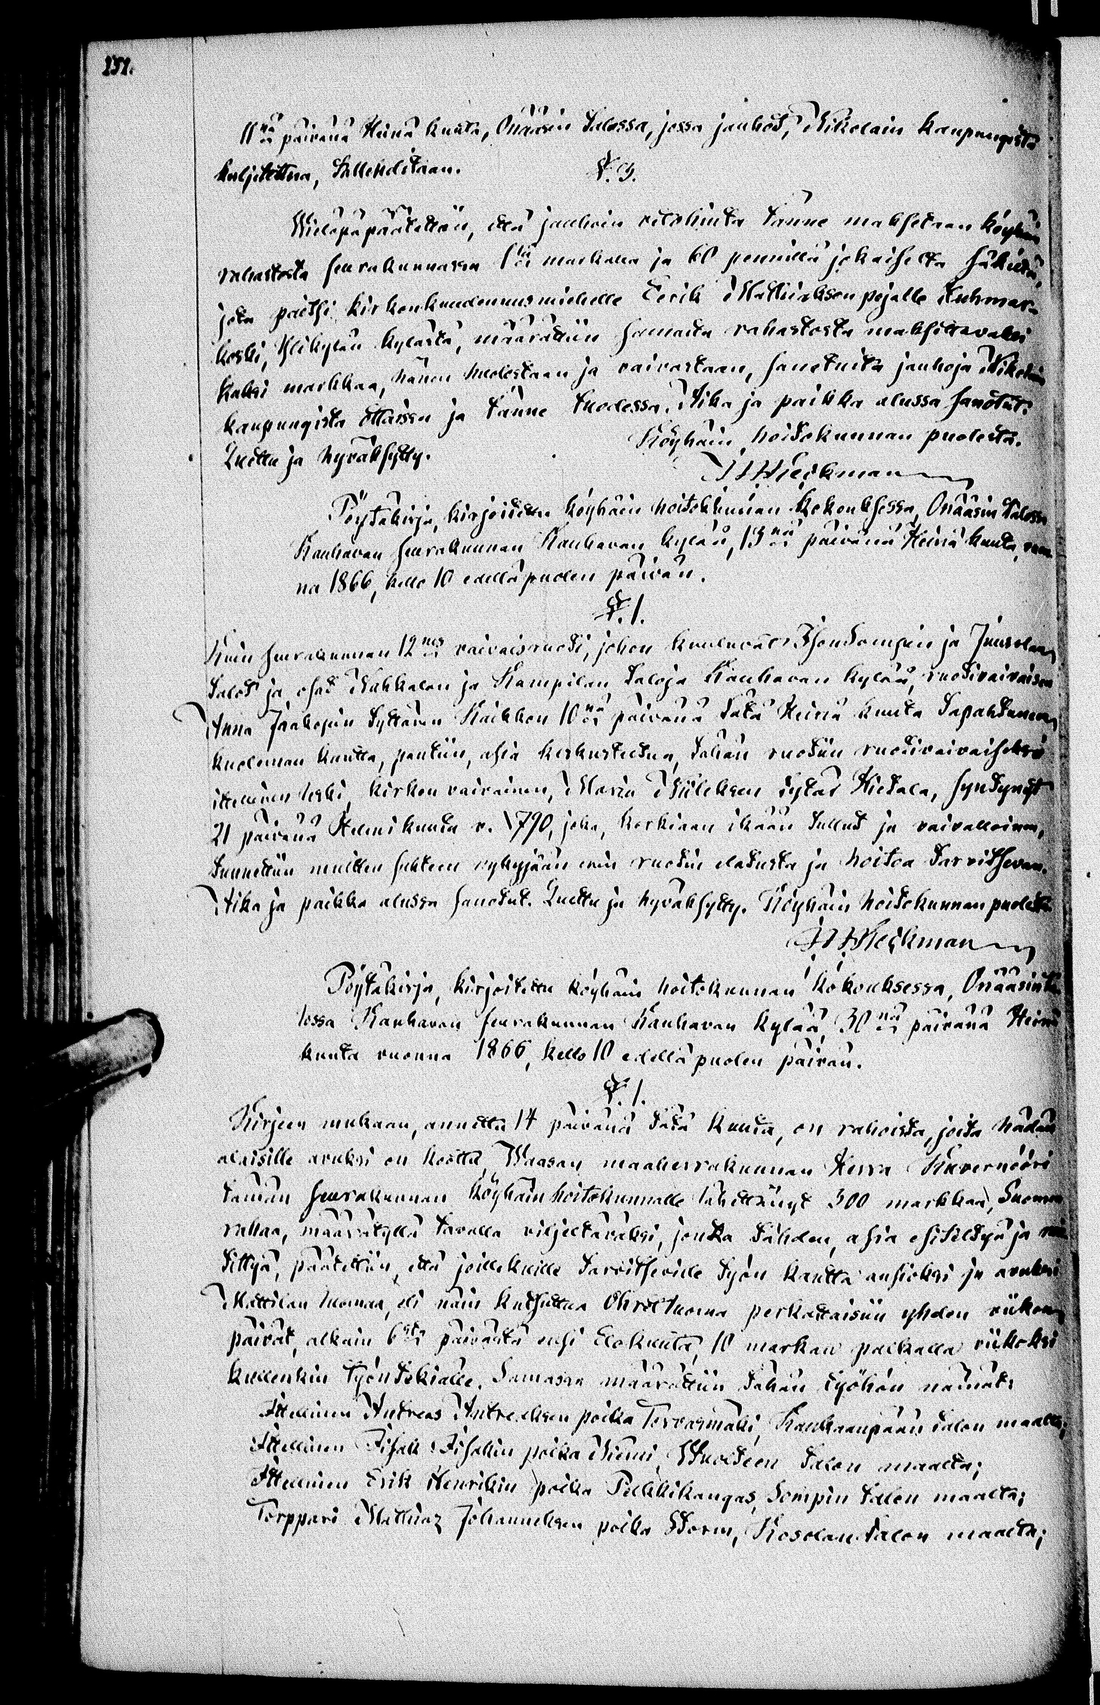 151.
11nä päivänä Heinä kuuta, Onääsin talossa, jossa jauhot, Nikolain kaupungista
kuljetettua, tallehditaan.
§. 3.
Wieläpä päätettiin, että jauhoin vetohinta tänne maksetaan köyhäin
rahastosta seurakunnassa 1llä markalla ja 60 pennillä jokaiselta säkiltä,
jota paitsi kirkonkuudennusmiehelle Eerik Matthiaksen pojalle Kuhmar-
koski, Ylikylän kylästä, määrättiin samasta rahastosta maksettavaksi
kaksi markkaa, hänen huolestaan ja vaivastaan, sanotuita jauhoja Nikolain
kaupungista ottaissa ja tänne tuodessa. Aika ja paikka alussa sanotut.
Köyhäin hoitokunnan puolesta.
Luettu ja hyväksytty.
Pöytäkirja, kirjoitettu köyhäin hoitokunnan kokouksessa, Onääsin talossa
Kauhavan seurakunnan Kauhavan kylää, 13nä päivänä Heinä kuuta, vuon-
na 1866, kello 10 edellä puolen päivän.
§. 1.
Kuin seurakunnan 12nes vaivaisruoti, johon kuuluvat Isontompin ja Juusolan
talot ja osat Wahkalan ja Kampilan taloja Kauhavan kylää, ruotivaivaisen
Anna Jaakopin tyttären Kaikkon 10nä päivänä tätä Heinä kuuta tapahtuneen
kuoleman kautta, pantiin, asia keskusteltua, tähän ruotiin ruotivaivaiseksi
itsellinen leski, kirkon vaivainen, Maria Mikkelsen tytär Hietala, syntynyt
21 päivänä Helmikuuta v. 1790, joka, korkiaan ikään tullut ja vaivalloinen,
tunnettiin muitten suhteen nykyjään enin ruodin elatusta ja hoitoa tarvitsevan.
Aika ja paikka alussa sanotut. Luettu ja hyväksytty. Köyhäin hoitokunnan puolesta
Pöytäkirja, kirjoitettu köyhäin hoitokunnan kokouksessa, Onääsin ta-
lossa Kauhavan seurakunnan Kauhavan kylää, 30nä päivänä Heinä
kuuta vuonna 1866, kello 10 edellä puolen päivän.
§. 1.
Kirjeen mukaan, annettu 14 päivänä tätä kuuta, on rahoista, joita hädän
alaisille avuksi on koottu, Waasan maaherrakunnan Herra Kuvernööri
tämän seurakunnan köyhäin hoitokunnalle lähettänyt 300 markkaa, Suomen
rahaa, määrätyllä tavalla viljeltäväksi, jonka tähden, asia esiteltyä ja
tittyä, päätettiin, että joillekuille tarvitseville työn kautta ansioksi ja avuksi
Mattilan luomaa, eli näin kutsuttua luoma perkattaisiin yhden viikon
päivät, alkain 6sta päivästä ensi Elokuuta, 10 markan palkalla viikoksi
kullenkin työntekiälle. Samassa määrättiin tähän työhön nämät:
Itsellinen Andreas Antreaksen poika Tervasmäki, Kauhaanpään talon maalta;
Itsellinen Iisak Iisakin poika Niemi, talon maalta;
Itsellinen Erik Henrikin poika Pelkkikangas, Sompin talon maalta;
Torppari Matthias Johanneksen poika Storm, Kosolan talon maalta;